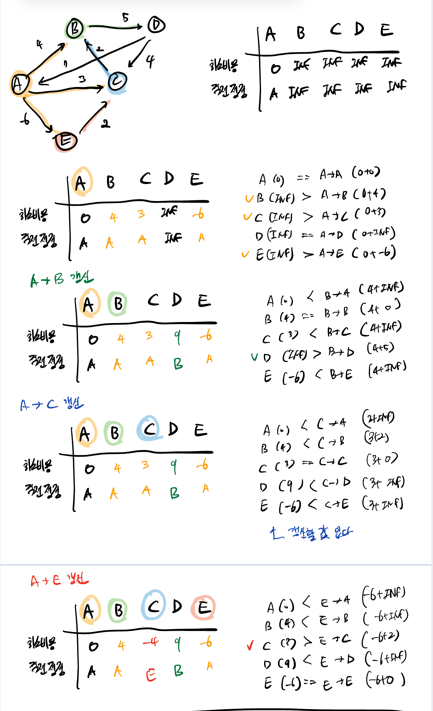 B 5 D
4 1 2 4
A 3 C
-6 2
E
A B C D E
최소비용 0 INF INF INF INF
주변정점 A INF INF INF INF
A B C D E
최소비용 0 4 3 INF -6
A A A INF A
A (0) == A→A (0+0)
✓ B (INF) > A→B (0+4)
✓ C (INF) > A→C (0+3)
D (INF) == A→D (0+INF)
✓ E (INF) > A→E (0+-6)
A→B 갱신
A B C D E
최소비용 0 4 3 9 -6
A A A B A
A (0) < B→A (4+INF)
B (4) == B→B (4+0)
C (3) < B→C (4+INF)
✓ D (INF) > B→D (4+5)
E (-6) < B→E (4+INF)
A→C 갱신
A B C D E
최소비용 0 4 3 9 -6
A A A B A
A (0) < C→A (3+INF)
B (4) < C→B (3+2)
C (3) == C→C (3+0)
D (9) < C→D (3+INF)
E (-6) < C→E (3+INF)
↑ 갱신할 값 없다
A→E 갱신
A B C D E
최소비용 0 4 -4 9 -6
A A E B A
A (0) < E→A (-6+INF)
B (4) < E→B (-6+INF)
✓ C (3) > E→C (-6+2)
D (9) < E→D (-6+INF)
E (-6) == E→E (-6+0)